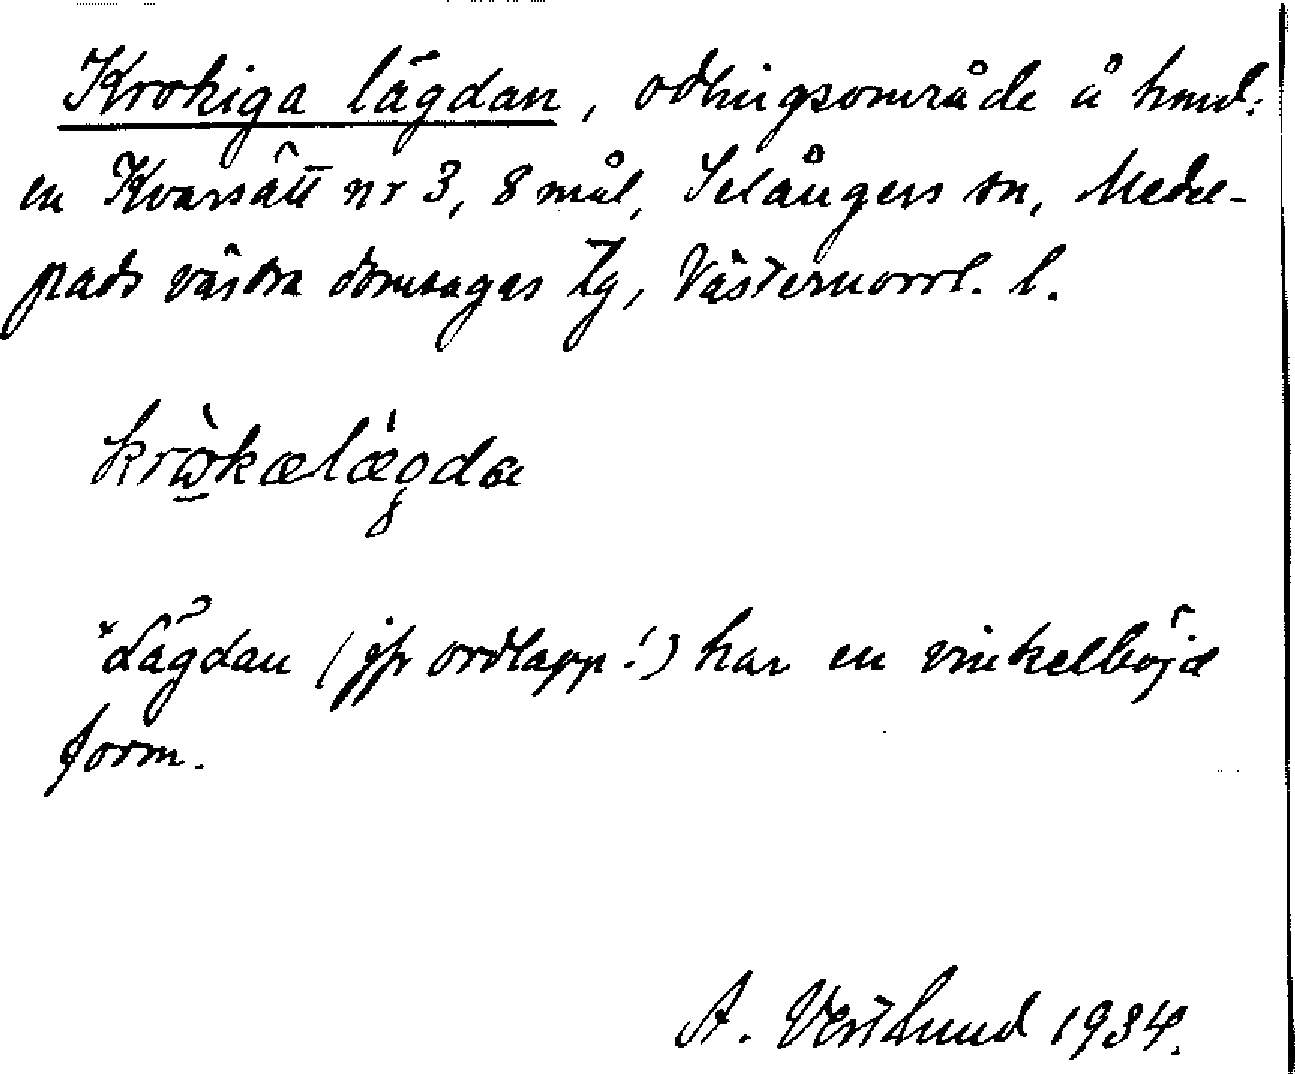 Krokiga lägdan, odlingsområde å hemd:
en Kvarsätt nr 3, 8 mål, Selångers sn, Medel-
pads västra domsagas tg, Västernorrl. l.
krὼkælǽgda
"Lägdan (jfr ordlapp!) har en vinkelböjd
form.
A. Vestlund 1934.